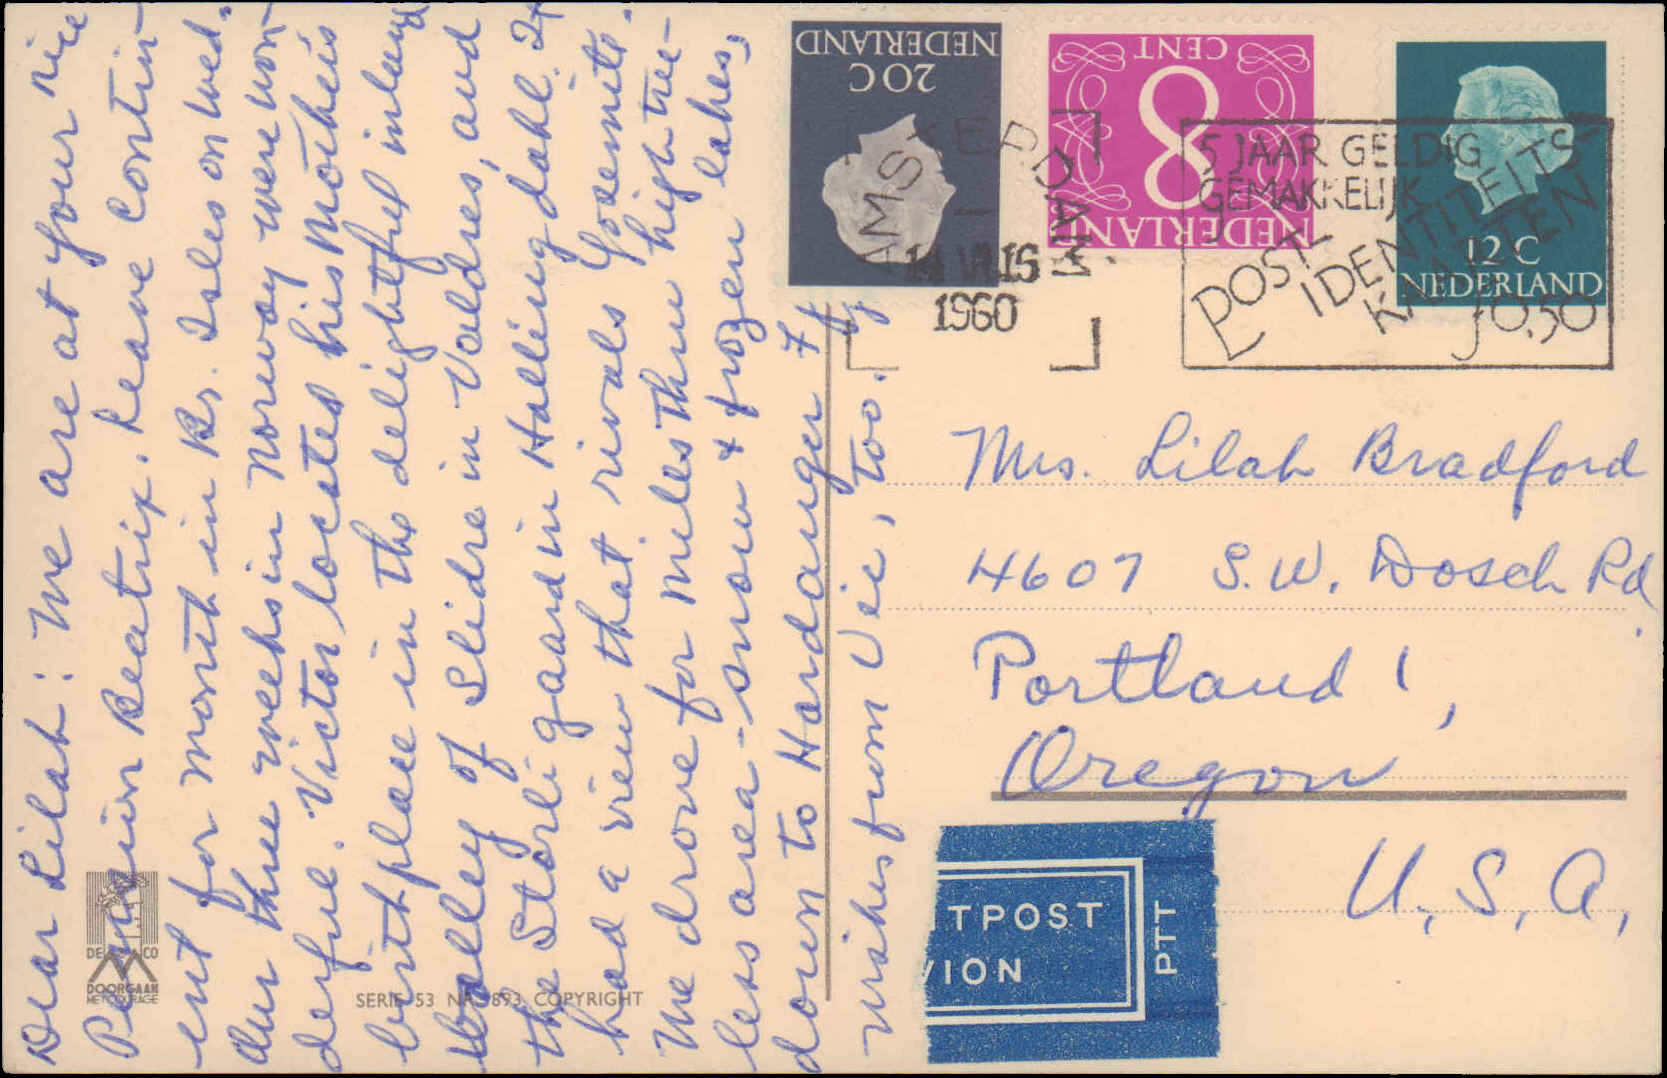 Dear Lilah: We are at your nice
Pension Beatrix. Leave Contin-
ent for month in Br. Isles on Wed.
Our three weeks in Norway were won-
derful. Victor located his mother's
birthplace in the delightful inland
Valley of Slidre in Valdres, and
the Storli gaard in Hallingdahl. It
had a view that rivals Yosemite.
We drove for miles thru high tree-
less area - snow & frozen lakes,
down to Hardanger
wishes from Vic, too.
DE CO
DOORGAAN
SERIE 53 893 COPYRIGHT
NEDERLAND
20 C
CENT
8
NEDERLAND
12 C
NEDERLAND
AMSTERDAM
14 VI 16
1960
5 JAAR GELDIG
GEMAKKELIJK
POST-
IDENTITEITS
KAARTEN
f 0.50
Mrs. Lilah Bradford
4607 S.W. Dosch Rd.
Portland 1,
Oregon
U.S.A.
TPOST
VION
PTT